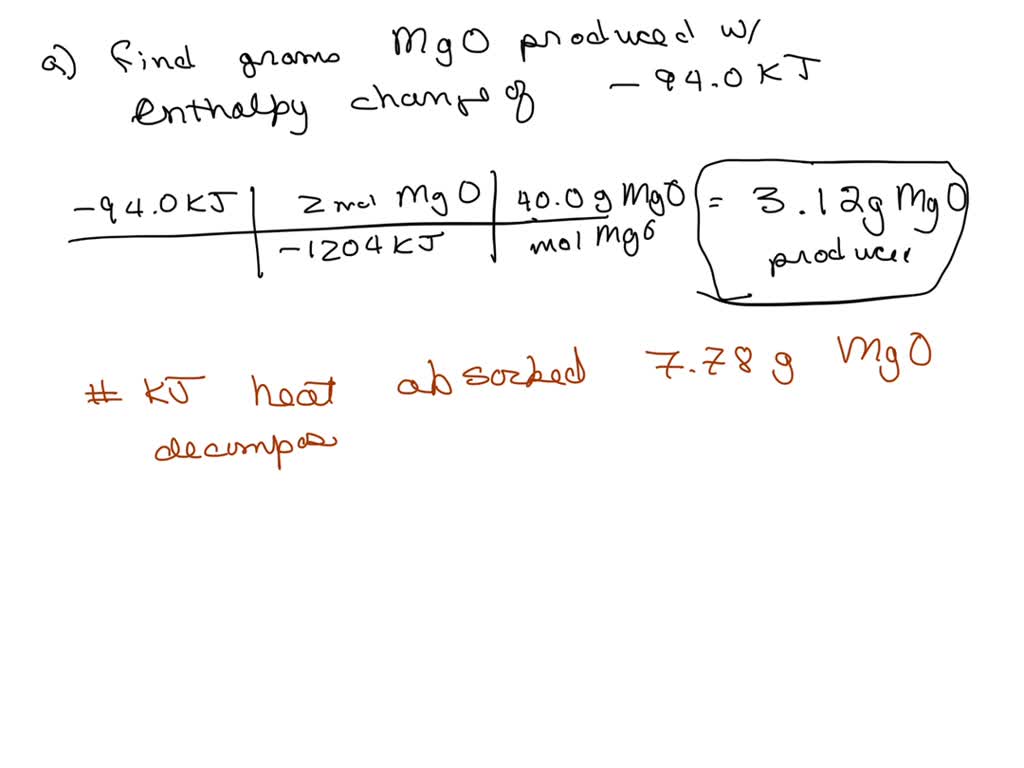 a) find grams MgO produced w/
enthalpy change of -94.0 KJ
-94.0 KJ | 2 mol MgO | 40.0 g MgO = 3.12g MgO
-1204 KJ | mol MgO produced
# KJ heat absorbed 7.78 g MgO
decompos